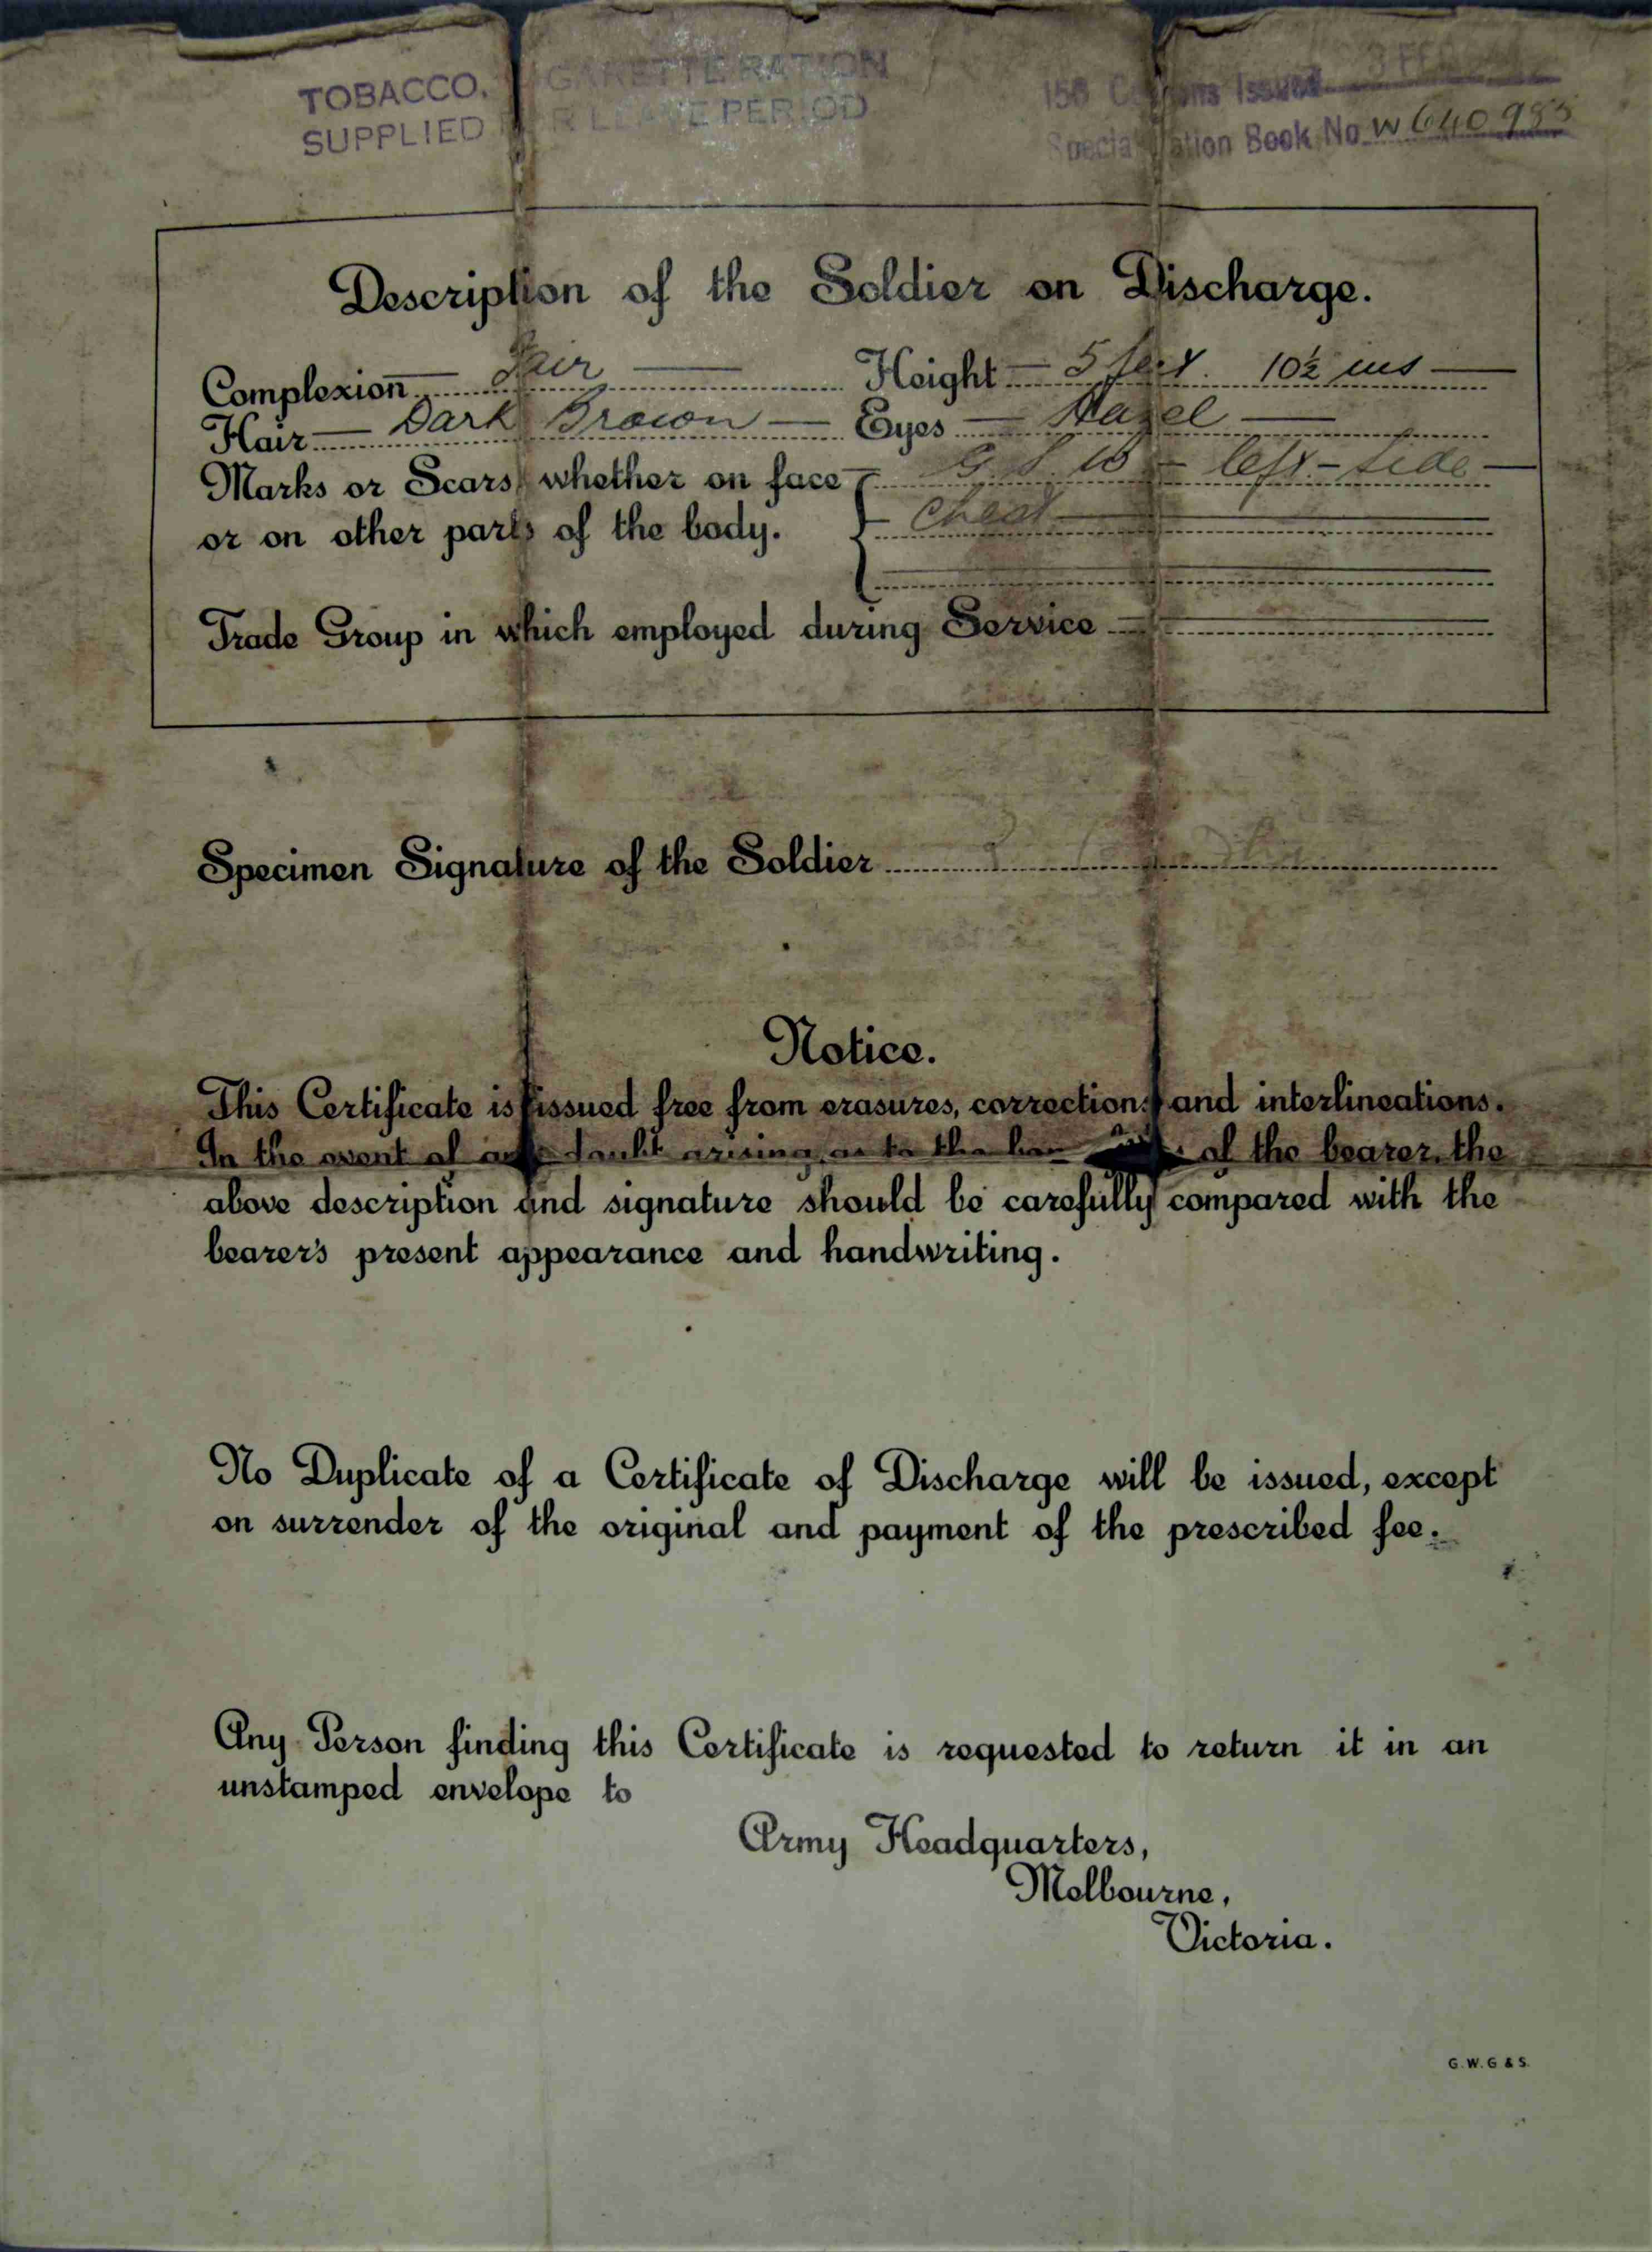 TOBACCO, CIGARETTE RATION
SUPPLIED FOR LEAVE PERIOD
156 Coupons Issued 3 FEB
Special Ration Book No. W640985
Description of the Soldier on Discharge.
Complexion Fair Height 5 feet. 10½ ins
Hair Dark Brown Eyes Hazel
Marks or Scars, whether on face G.S.W - left-side
or on other parts of the body. Chest
Trade Group in which employed during Service
Specimen Signature of the Soldier
Notice.
This Certificate is issued free from erasures, corrections and interlineations.
In the event of any doubt arising, as to the of the bearer, the
above description and signature should be carefully compared with the
bearer's present appearance and handwriting.
No Duplicate of a Certificate of Discharge will be issued, except
on surrender of the original and payment of the prescribed fee.
Any Person finding this Certificate is requested to return it in an
unstamped envelope to
Army Headquarters,
Melbourne,
Victoria.
G.W.G & S.